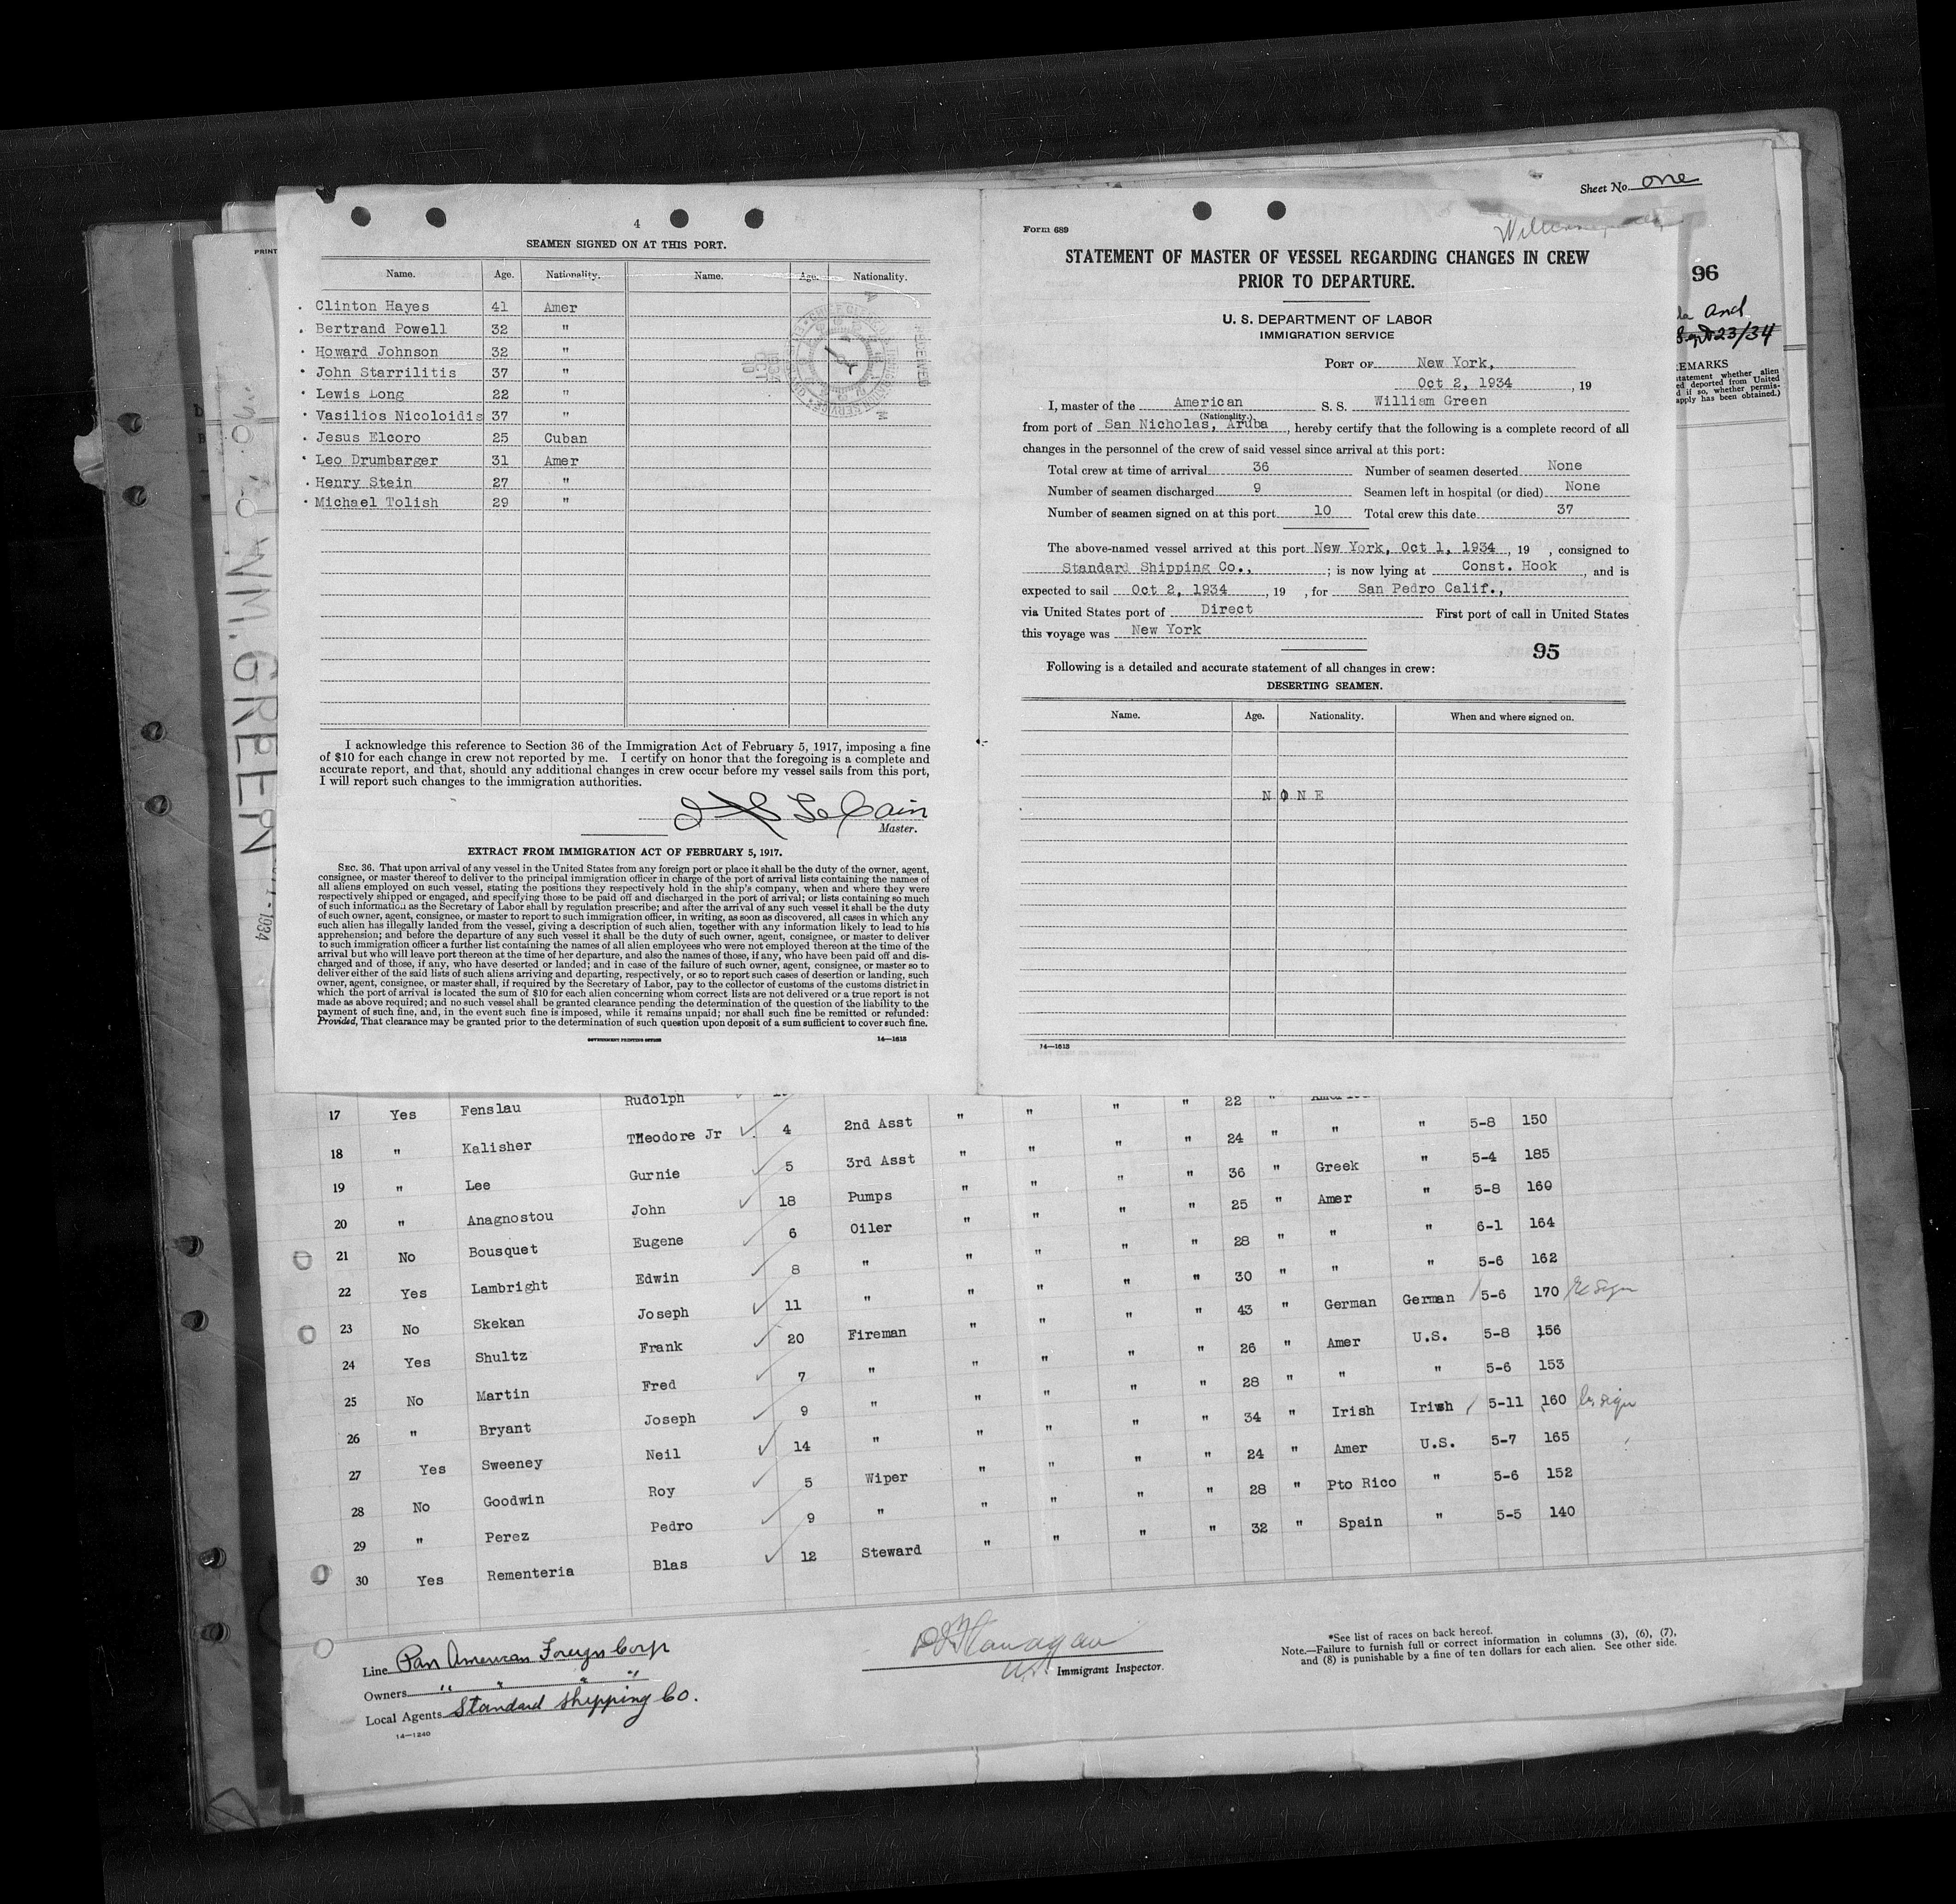 4
SEAMEN SIGNED ON AT THIS PORT.
Name. Age. Nationality. Name. Age. Nationality.
Clinton Hayes 41 Amer
Bertrand Powell 32 "
Howard Johnson 32 "
John Starrilitis 37 "
Lewis Long 22 "
Vasilios Nicoloidis 37 "
Jesus Elcoro 25 Cuban
Leo Drumbarger 31 Amer
Henry Stein 27 "
Michael Tolish 29 "
I acknowledge this reference to Section 36 of the Immigration Act of February 5, 1917, imposing a fine
of $10 for each change in crew not reported by me. I certify on honor that the foregoing is a complete and
accurate report, and that, should any additional changes in crew occur before my vessel sails from this port,
I will report such changes to the immigration authorities.
Master.
EXTRACT FROM IMMIGRATION ACT OF FEBRUARY 5, 1917.
SEC. 36. That upon arrival of any vessel in the United States from any foreign port or place it shall be the duty of the owner, agent,
consignee, or master thereof to deliver to the principal immigration officer in charge of the port of arrival lists containing the names of
all aliens employed on such vessel, stating the positions they respectively hold in the ship's company, when and where they were
respectively shipped or engaged, and specifying those to be paid off and discharged in the port of arrival; or lists containing so much
of such information as the Secretary of Labor shall by regulation prescribe; and after the arrival of any such vessel it shall be the duty
of such owner, agent, consignee, or master to report to such immigration officer, in writing, as soon as discovered, all cases in which any
such alien has illegally landed from the vessel, giving a description of such alien, together with any information likely to lead to his
apprehension; and before the departure of any such vessel it shall be the duty of such owner, agent, consignee, or master to deliver
to such immigration officer a further list containing the names of all alien employees who were not employed thereon at the time of the
arrival but who will leave port thereon at the time of her departure, and also the names of those, if any, who have been paid off and dis-
charged and of those, if any, who have deserted or landed; and in case of the failure of such owner, agent, consignee, or master so to
deliver either of the said lists of such aliens arriving and departing, respectively, or so to report such cases of desertion or landing, such
owner, agent, consignee, or master shall, if required by the Secretary of Labor, pay to the collector of customs of the customs district in
which the port of arrival is located the sum of $10 for each alien concerning whom correct lists are not delivered or a true report is not
made as above required; and no such vessel shall be granted clearance pending the determination of the question of the liability to the
payment of such fine, and, in the event such fine is imposed, while it remains unpaid; nor shall such fine be remitted or refunded:
Provided, That clearance may be granted prior to the determination of such question upon deposit of a sum sufficient to cover such fine.
GOVERNMENT PRINTING OFFICE 14—1613
Sheet No. one
Form 689
STATEMENT OF MASTER OF VESSEL REGARDING CHANGES IN CREW
PRIOR TO DEPARTURE.
U. S. DEPARTMENT OF LABOR
IMMIGRATION SERVICE
PORT OF New York,
Oct 2, 1934, 19
I, master of the American S. S. William Green
(Nationality.)
from port of San Nicholas, Aruba, hereby certify that the following is a complete record of all
changes in the personnel of the crew of said vessel since arrival at this port:
Total crew at time of arrival 36 Number of seamen deserted None
Number of seamen discharged 9 Seamen left in hospital (or died) None
Number of seamen signed on at this port 10 Total crew this date 37
The above-named vessel arrived at this port New York, Oct 1, 1934, 19 , consigned to
Standard Shipping Co., ; is now lying at Const. Hook, and is
expected to sail Oct 2, 1934, 19 , for San Pedro Calif.,
via United States port of Direct First port of call in United States
this voyage was New York
95
Following is a detailed and accurate statement of all changes in crew:
DESERTING SEAMEN.
Name. Age. Nationality. When and where signed on.
NONE
14—1613
96
and
23/34
EMARKS
tatement whether alien
ed deported from United
d if so, whether permis-
apply has been obtained.)
PRINT
WM. GREEN
1934
17 Yes Fenslau Rudolph " " " " 22 "
18 " Kalisher Theodore Jr 4 2nd Asst " " " " 24 " " " 5-8 150
19 " Lee Gurnie 5 3rd Asst " " " " 36 " Greek " 5-4 185
20 " Anagnostou John 18 Pumps " " " " 25 " Amer " 5-8 160
21 No Bousquet Eugene 6 Oiler " " " " 28 " " " 6-1 164
22 Yes Lambright Edwin 8 " " " " " 30 " " " 5-6 162
23 No Skekan Joseph 11 " " " " " 43 " German German 5-6 170
24 Yes Shultz Frank 20 Fireman " " " " 26 " Amer U.S. 5-8 156
25 No Martin Fred 7 " " " " " 28 " " " 5-6 153
26 " Bryant Joseph 9 " " " " " 34 " Irish Irish 5-11 160
27 Yes Sweeney Neil 14 " " " " " 24 " Amer U.S. 5-7 165
28 No Goodwin Roy 5 Wiper " " " " 28 " Pto Rico " 5-6 152
29 " Perez Pedro 9 " " " " " 32 " Spain " 5-5 140
30 Yes Rementeria Blas 12 Steward " "
Line Pan American Foreign Corp
Owners " " " "
Local Agents Standard Shipping Co.
14—1240
Immigrant Inspector.
*See list of races on back hereof.
Note.—Failure to furnish full or correct information in columns (3), (6), (7),
and (8) is punishable by a fine of ten dollars for each alien. See other side.